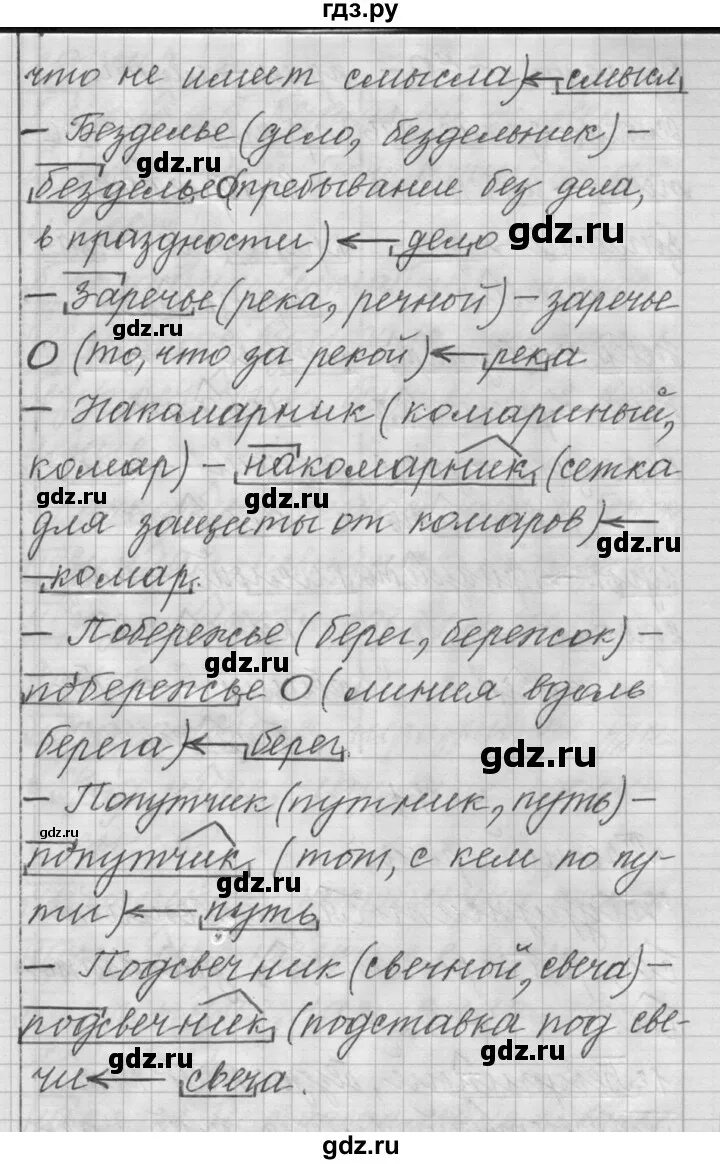 гдз.ру
что не имеет смысла) ← смысл
– Безделье (дело, бездельник) –
gdz.ru
безделье (пребывание без дела,
в праздности) ← дело
gdz.ru
– Заречье (река, речной) – заречье
gdz.ru
(то, что за рекой) ← река
– Накомарник (комариный,
комар) – накомарник (сетка
gdz.ru gdz.ru
для защиты от комаров) ←
gdz.ru
комар.
– Побережье (берег, бережок) –
gdz.ru
побережье (линия вдоль
берега) ← берег.
gdz.ru
– Попутчик (путник, путь) –
gdz.ru
попутчик (тот, с кем по пу-
gdz.ru
ти) ← путь
– Подсвечник (свечной, свеча) –
подсвечник (подставка под све-
gdz.ru gdz.ru
чи ← свеча.
gdz.ru